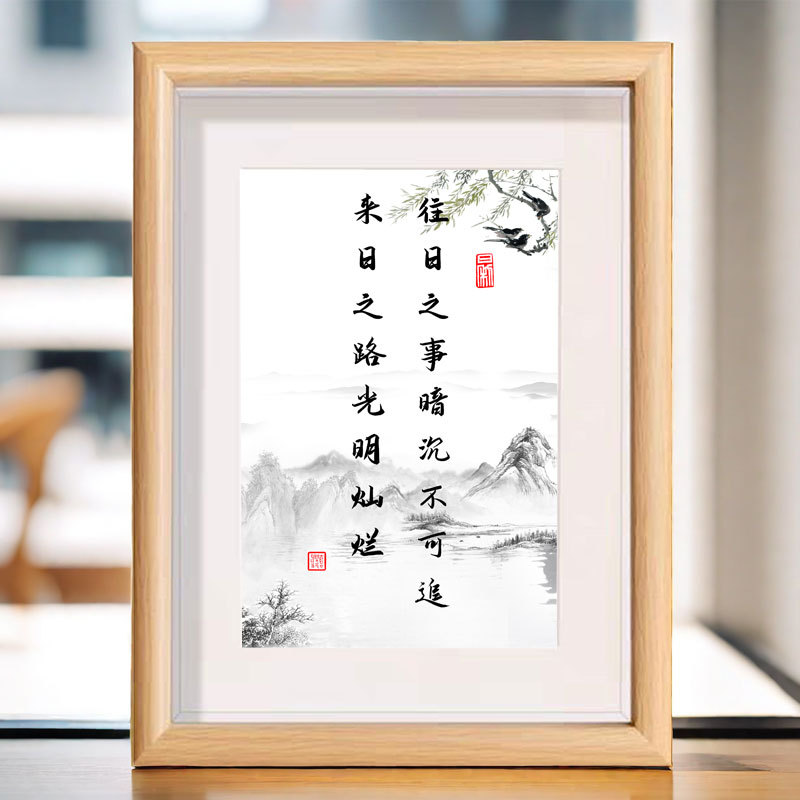 往日之事暗沉不可追
来日之路光明灿烂